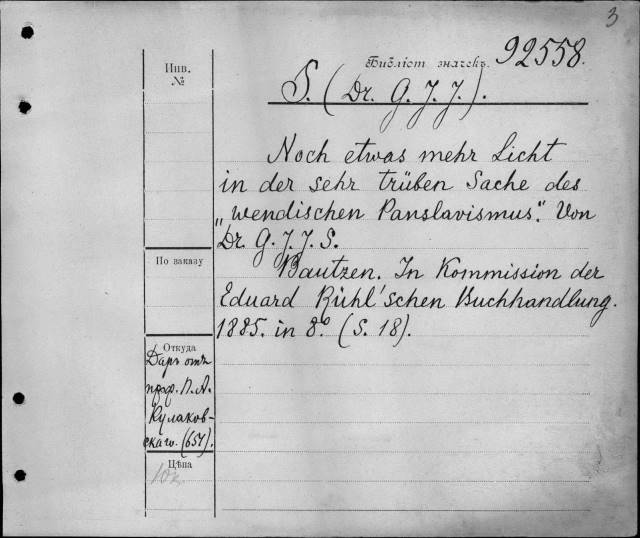 3
Инв.
№
Библіот. значекъ. 92558.
S. (Dr. G. J. J.).
Noch etwas mehr Licht
in der sehr trüben Sache des
„wendischen Panslavismus". Von
Dr. G. J. J. S.
Bautzen. In Kommission der
Eduard Rühl'schen Buchhandlung.
1885. in 8º. (S. 18).
По заказу
Откуда
Даръ отъ
проф. П. А.
Кулаков-
скаго. (657).
Цѣна